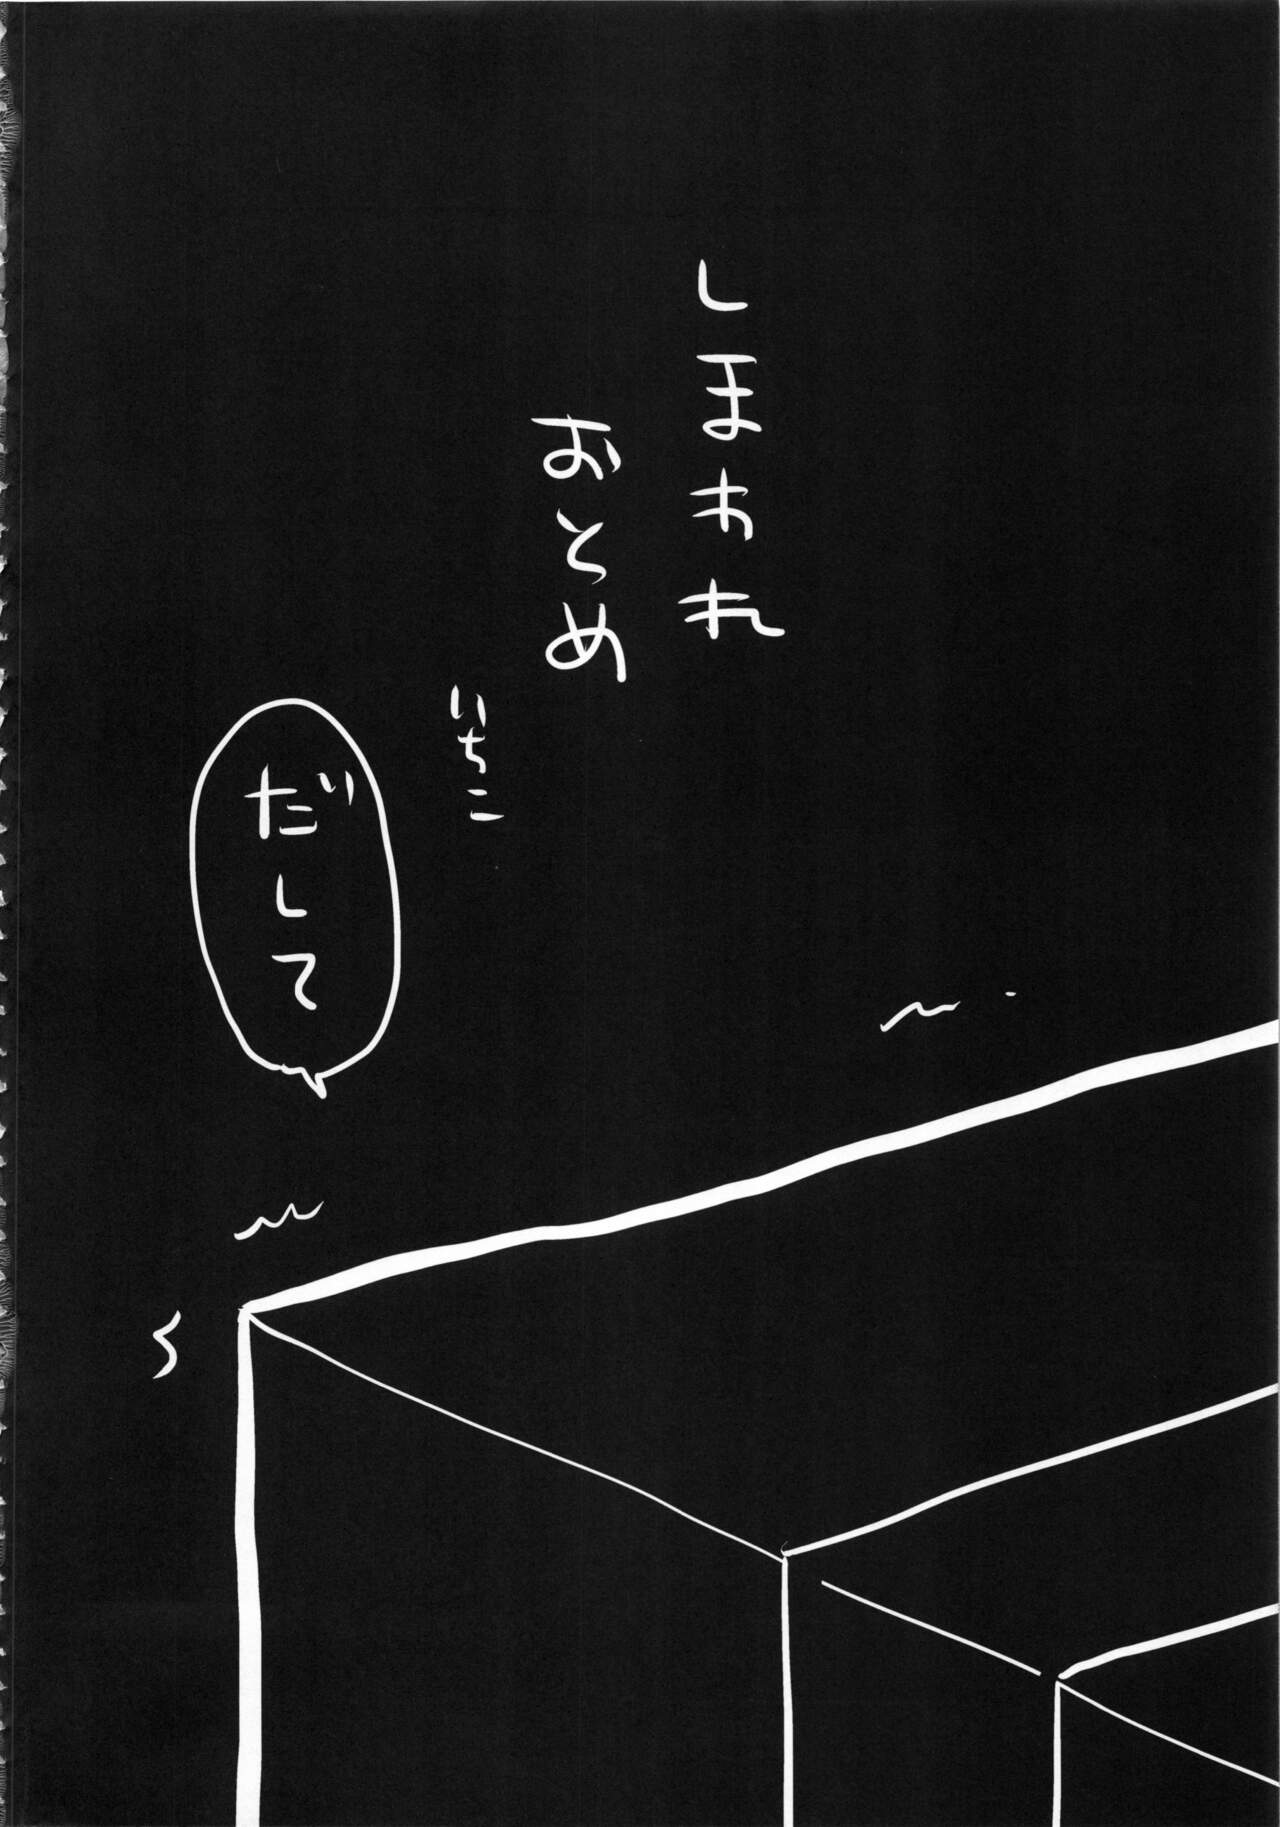 しまわれ
おとめ
いちこ
だして